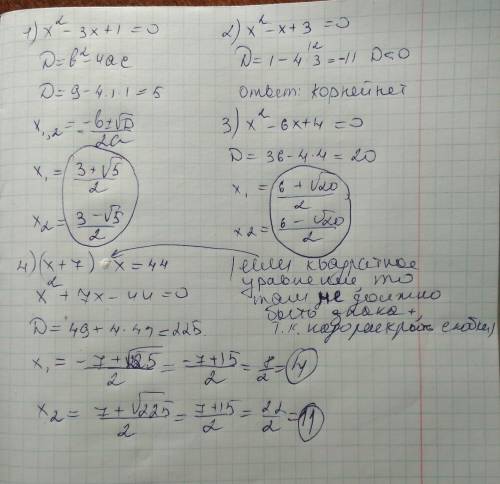 1) x² - 3x + 1 = 0
D = b² - 4ac
D = 9 - 4·1·1 = 5
x₁,₂ = (-b ± √D)/2a
x₁ = (3 + √5)/2
x₂ = (3 - √5)/2
2) x² - x + 3 = 0
D = 1 - 4·3 = -11 D < 0
ответ: корней нет
3) x² - 6x + 4 = 0
D = 36 - 4·4 = 20
x₁ = (6 + √20)/2
x₂ = (6 - √20)/2
4) (x + 7) x = 44
x² + 7x - 44 = 0
D = 49 + 4·49 = 225
x₁ = (-7 + √225)/2 = (-7 + 15)/2 = 8/2 = 4
x₂ = (7 + √225)/2 = (7 + 15)/2 = 22/2 = 11
если квадратное
уравнение то
там не должно
быть знака +,
т.к. надо раскрыть скобки